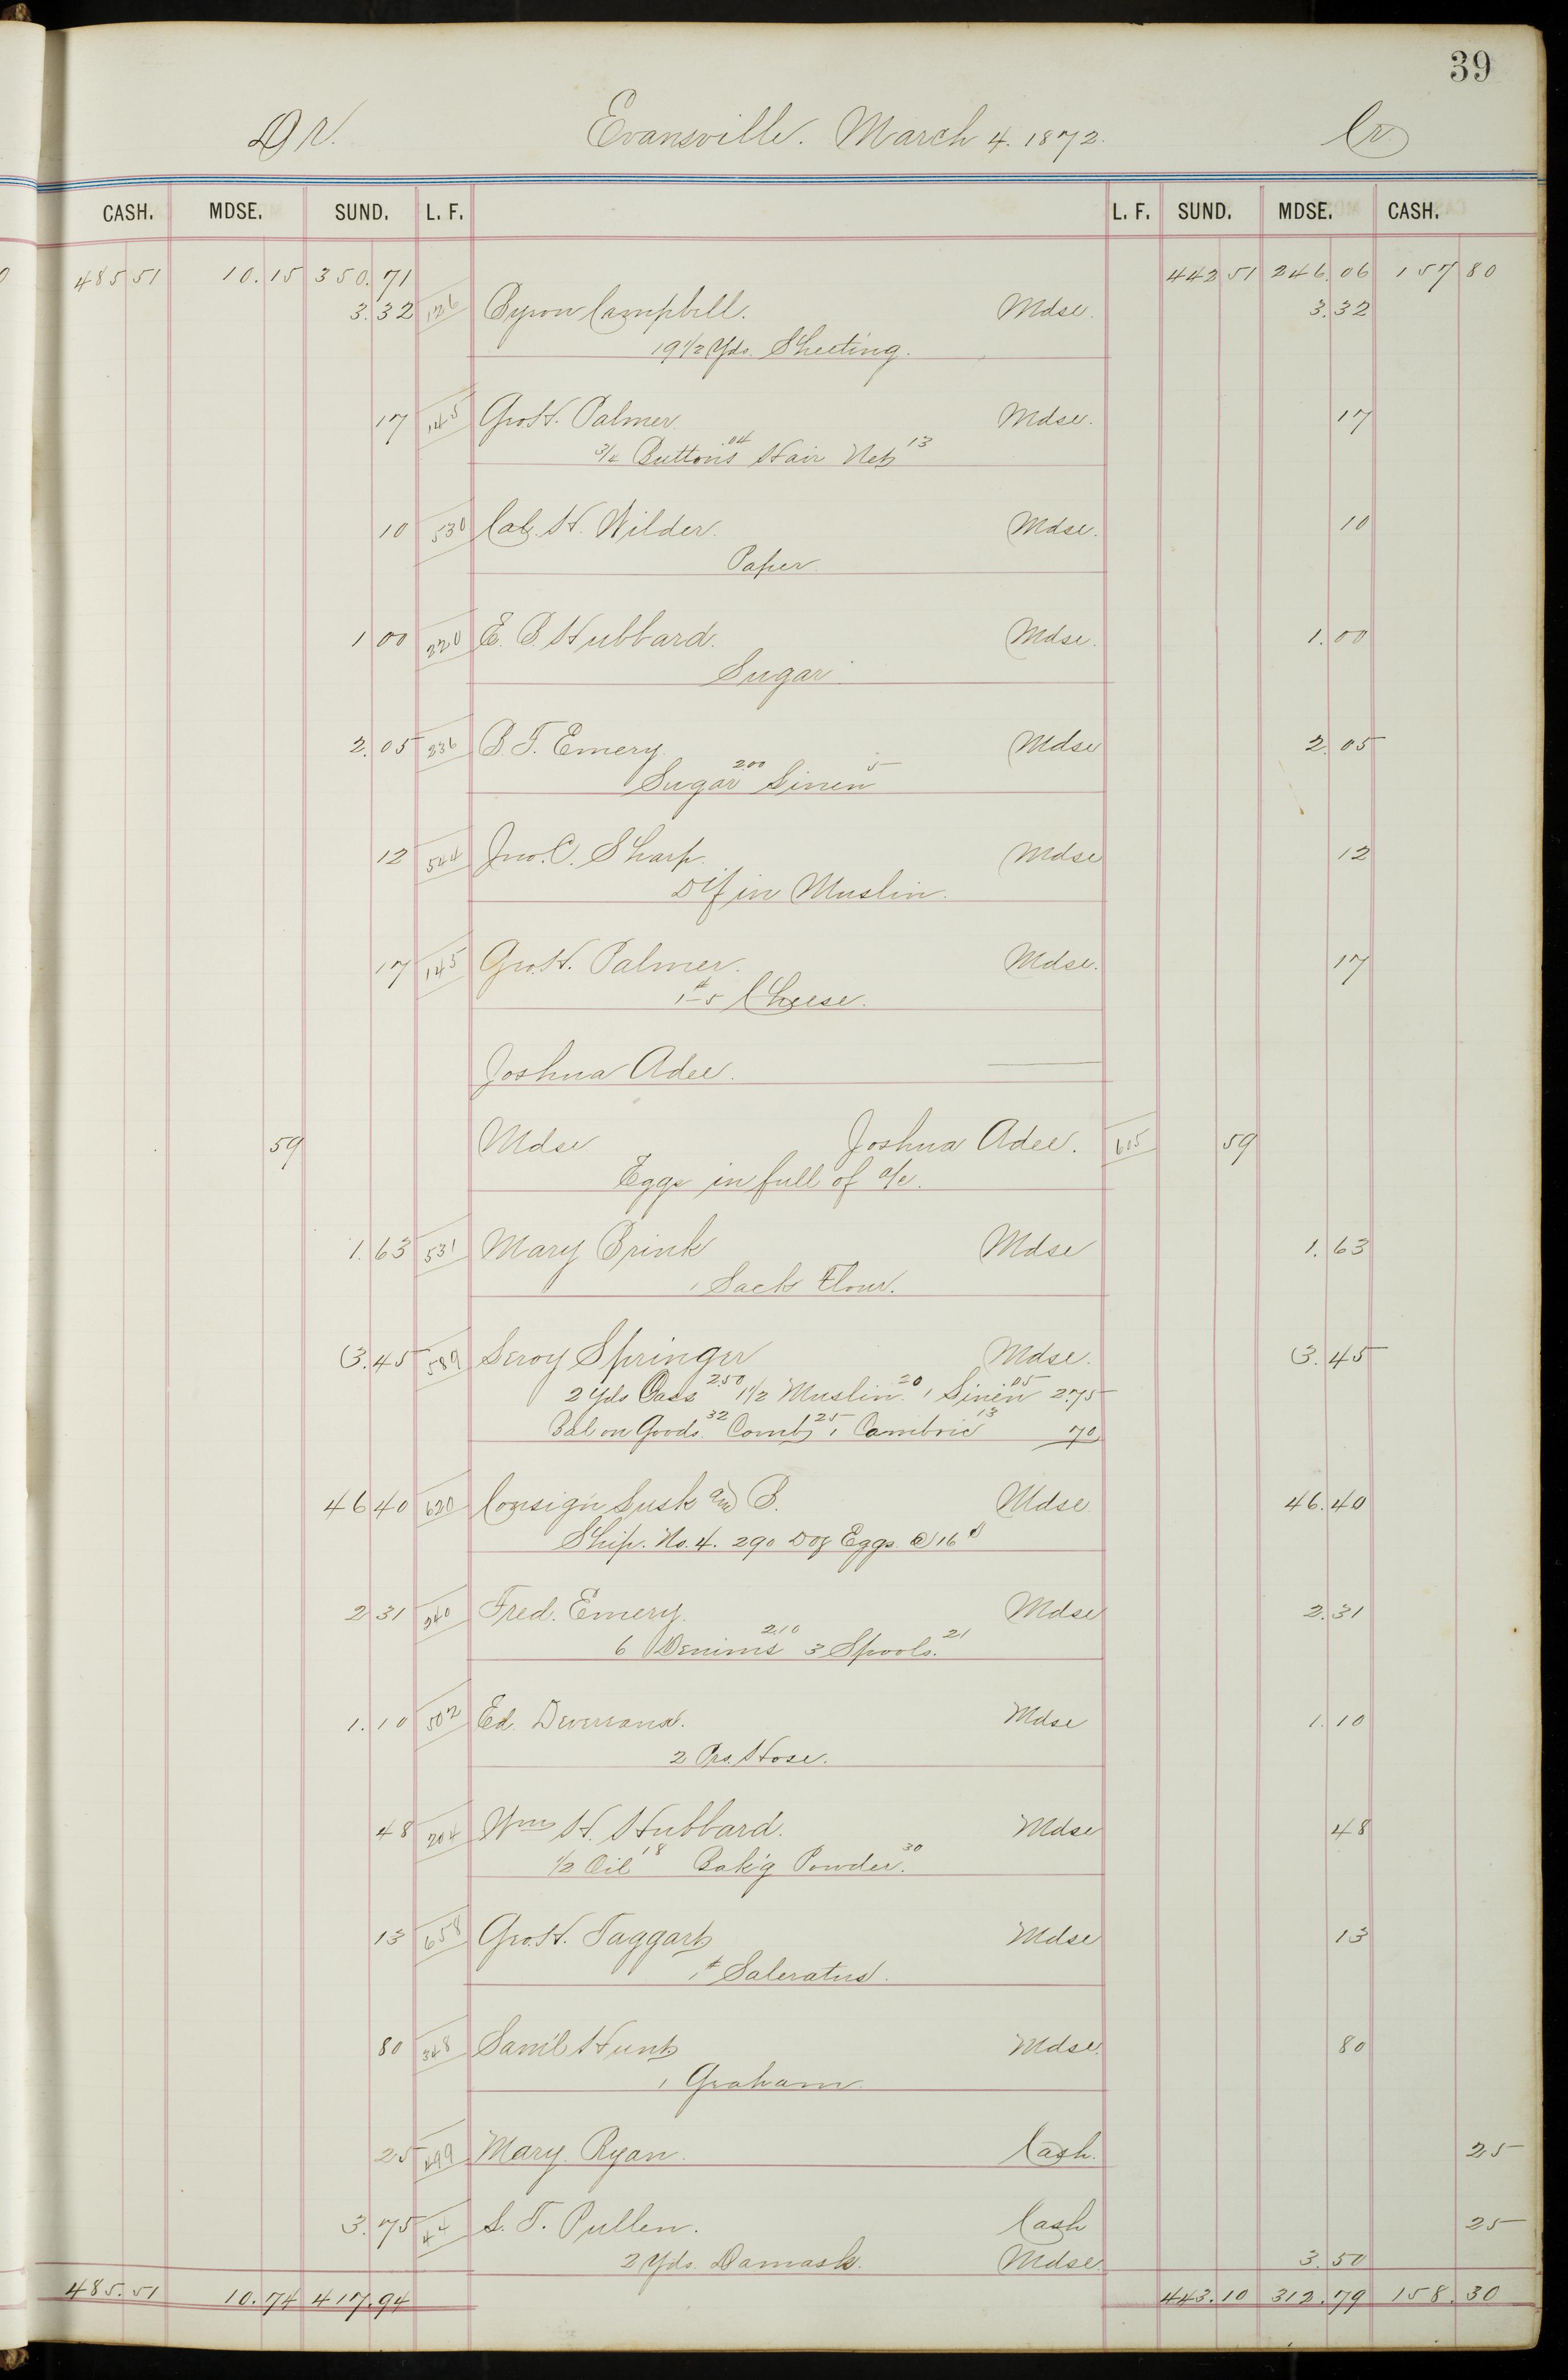 39
Dr. Evansville. March 4. 1872. Cr.
CASH. MDSE. SUND. L. F. L. F. SUND. MDSE. CASH.
485 51 10.15 350.71 442 51 246.06 157 80
3.32 126 Byron Campbell. Mdse. 3.32
19 1/2 Yds. Sheeting.
17 145 Geo. H. Palmer. Mdse. 17
3/4 Buttons .04 Hair Net 13
10 530 Cal. H. Wilder. Mdse. 10
Paper.
1 00 220 E. B. Hubbard. Mdse. 1.00
Sugar
2.05 236 B. F. Emery. Mdse 2.05
Sugar 2.00 Linen 5
12 544 Jno. C. Sharp. Mdse 12
Dif in Muslin.
17 145 Geo. H. Palmer. Mdse. 17
1-5 # Cheese.
Joshua Adee.
59 Mdse Joshua Adee. 605 59
Eggs in full of a/c.
1.63 531 Mary Brink Mdse 1.63
1 Sack Flour.
3.45 589 Leroy Springer Mdse. 3.45
2 Yds Cass 2.50 1 1/2 Muslin 20 1 Linen 05 2.75
Bal on Goods. 32 Comb 25 1 Cambric 13 70
46 40 620 Consign Lusk and B. Mdse 46.40
Ship. No. 4. 290 Doz Eggs. @ 16
2 31 240 Fred. Emery. Mdse 2.31
6 Denims 2.10 3 Spools. 21
1.10 502 Ed. Mdse 1.10
2 Prs. Hose.
48 204 Wm H. Hubbard. Mdse 48
1/2 Oil 18 Bak'g Powder. 30
13 658 Geo. H. Taggart Mdse 13
1 # Saleratus.
80 348 Sam'l Hunt Mdse. 80
1 Graham.
25 499 Mary Ryan. Cash. 25
3.75 44 S. T. Pullen. Cash 25
2 Yds. Damask. Mdse. 3.50
485.51 10.74 417.94 443.10 312.79 158.30